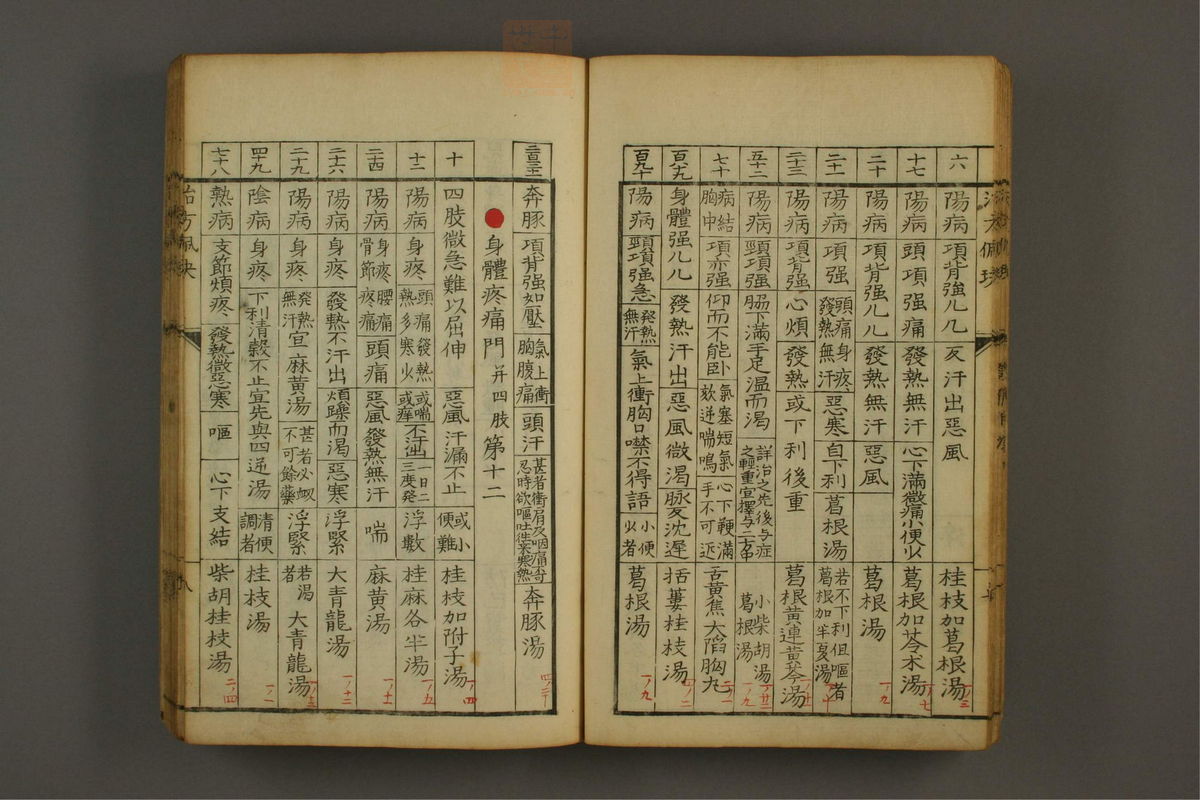 治方佩玦
六 陽病 項背強几几 反汗出惡風 桂枝加葛根湯 一ノ三
十七 陽病 頭項强痛 發熱無汗 心下滿微痛小便少 葛根加苓朮湯 一ノ七
二十 陽病 項背强几几 發熱無汗 惡風 葛根湯 一ノ九
二十一 陽病 項强 頭痛身疼發熱無汗 惡寒 自下利 葛根湯 若不下利但嘔者葛根加半夏湯 一ノ十
二十三 陽病 項背强 心煩 發熱 或下利後重 葛根黃連黃芩湯
五十二 陽病 頸項强 脇下滿手足溫而渴 詳治之先後与症之輕重宜擇与 小柴胡湯 葛根湯 一ノ九
七十 病結胸中 項亦强 仰而不能臥 氣塞短氣欬逆喘鳴 心下鞕滿手不可近 舌黃焦 大陷胸丸 二ノ一
百九 身體强几几 發熱汗出 惡風微渴 脉反沈遲 括蔞桂枝湯 四ノ二
百九十 陽病 頸項强急 發熱無汗 氣上衝胸口噤不得語 小便少者 葛根湯 一ノ九
奔豚 項背强如壓 氣上衝胸腹痛 頭汗 甚者衝肩及咽痛 忍時欲嘔吐 往來寒熱 奔豚湯
身體疼痛門 并四肢 第十二
十 四肢微急難以屈伸 惡風 汗漏不止 或小便難 桂枝加附子湯 一ノ四
十二 陽病 身疼 頭痛發熱熱多寒少 或喘或痒 不嘔 一日二三度發 浮數 桂麻各半湯 一ノ五
二十四 陽病 身疼腰痛骨節疼痛 頭痛 惡風發熱無汗 喘 麻黃湯 一ノ十
二十六 陽病 身疼 發熱不汗出 煩躁而渴 惡寒 浮緊 大青龍湯 一ノ十三
二十九 陽病 身疼 發熱無汗 宜麻黃湯 甚者必衂不可餘藥 浮緊 若渴者 大青龍湯 一ノ十三
四十九 陰病 身疼 下利清穀不止宜先與四逆湯 清便調者 桂枝湯 一ノ一
七十八 熱病 支節煩疼 發熱微惡寒 嘔 心下支結 柴胡桂枝湯 二ノ四
治方佩玦
八